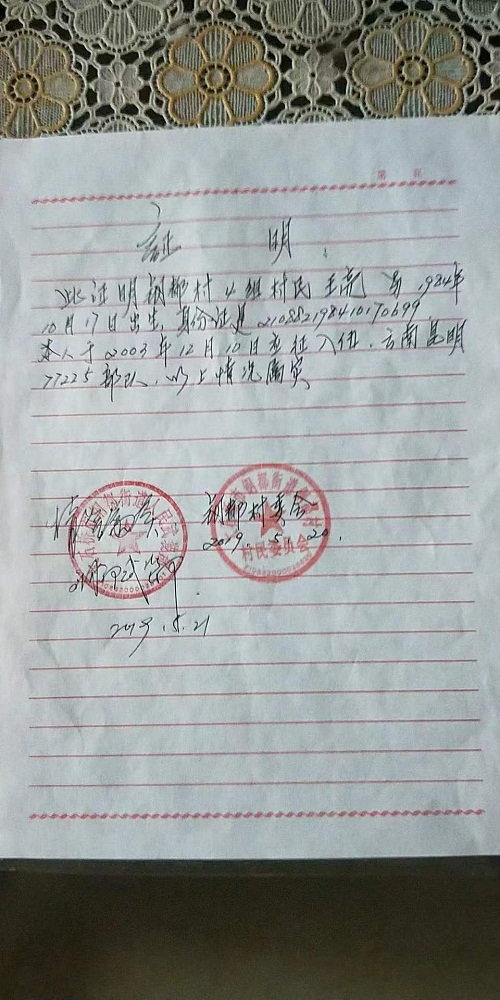 第 页
证 明
此证明朝都村4组村民王亮 男 1984年
10月17日出生,身份证是210882198410170699
本人于2003年12月10日应征入伍.云南昆明
77225部队.以上情况属实
情况属实
朝都村委会
2019.5.20.
村民委员会
2019.5.21